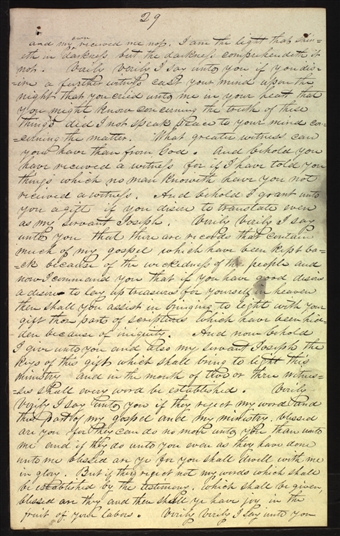 29
own
and my received me not, I am the light that shin-
eth in darkness but the darkness comprehendeth it
not. Verily Verily I say unto you if you des-
ire a further witness cast your mind upon the
night that you cried unto me in your heart that
you might know concerning the truth of these
things did I not speak peace to your mind co-
ncerning the matter. What greater witness can
you have than from God. And behold you
have received a witness for if I have told you
things which no man knoweth have you not
received a witness. And behold I grant unto
you a gift if you desire to translate even
as my servant Joseph. Verily Verily I say
unto you that there are records that contain
much of my gospel which have been kept ba-
ck because of the wickedness of the people and
now I command you that if you have good desires
a desire to lay up treasures for yourself in heaven
then shall you assist in bringing to light with your
gift those parts of scriptures which have been hid-
den because of iniquity. And now behold
I give unto you and also my servant Joseph the
keys of this gift which shall bring to light this
ministry and in the mouth of two or three witnes-
ses shall every word be established. Verily
Verily I say unto you if they reject my words and
this part of my gospel and my ministry blessed
are ye for they can do no more unto you than unto
me and if they do unto you even as they have done
unto me blessed are ye for you shall dwell with me
in glory. But if they reject not my words which shall
be established by the testimony which shall be given
blessed are they and then shall ye have joy in the
fruit of your labors. Verily Verily I say unto you